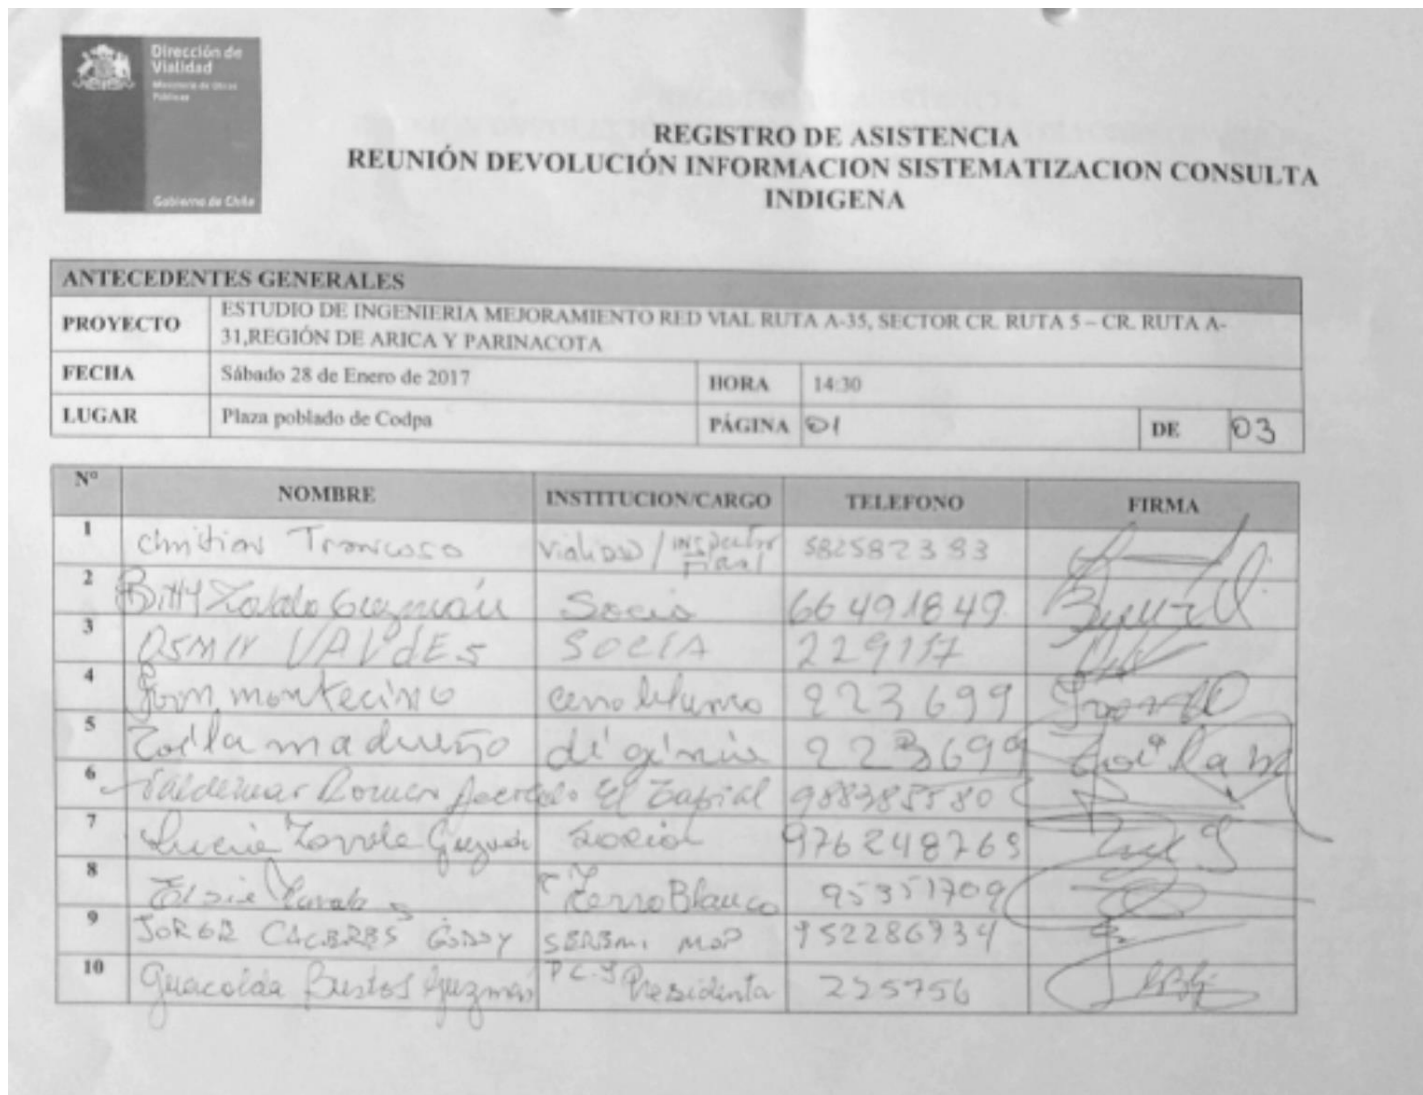 Dirección de
Vialidad
Ministerio de Obras
Públicas
Gobierno de Chile
REGISTRO DE ASISTENCIA
REUNIÓN DEVOLUCIÓN INFORMACION SISTEMATIZACION CONSULTA
INDIGENA
ANTECEDENTES GENERALES
PROYECTO ESTUDIO DE INGENIERIA MEJORAMIENTO RED VIAL RUTA A-35, SECTOR CR. RUTA 5 – CR. RUTA A-
31,REGIÓN DE ARICA Y PARINACOTA
FECHA Sábado 28 de Enero de 2017 HORA 14:30
LUGAR Plaza poblado de Codpa PÁGINA 01 DE 03
Nº NOMBRE INSTITUCION/CARGO TELEFONO FIRMA
1 Christian Troncoso Vialidad / Inspector Fiscal 582582383
2 Guzmán Socio 66491849
3 VALdES SOCIA 229117
4 montecino cerro blanco 223699
5 Zoila madueño 223699
6 Valdemar Romero El Tapial
7 Lucia Socia 976248769
8 Elsie Cerro Blanco 95351709
9 JORGE CACERES GODOY SEREMI MOP 952286734
10 Guacolda Bustos Guzmán Presidenta 225756